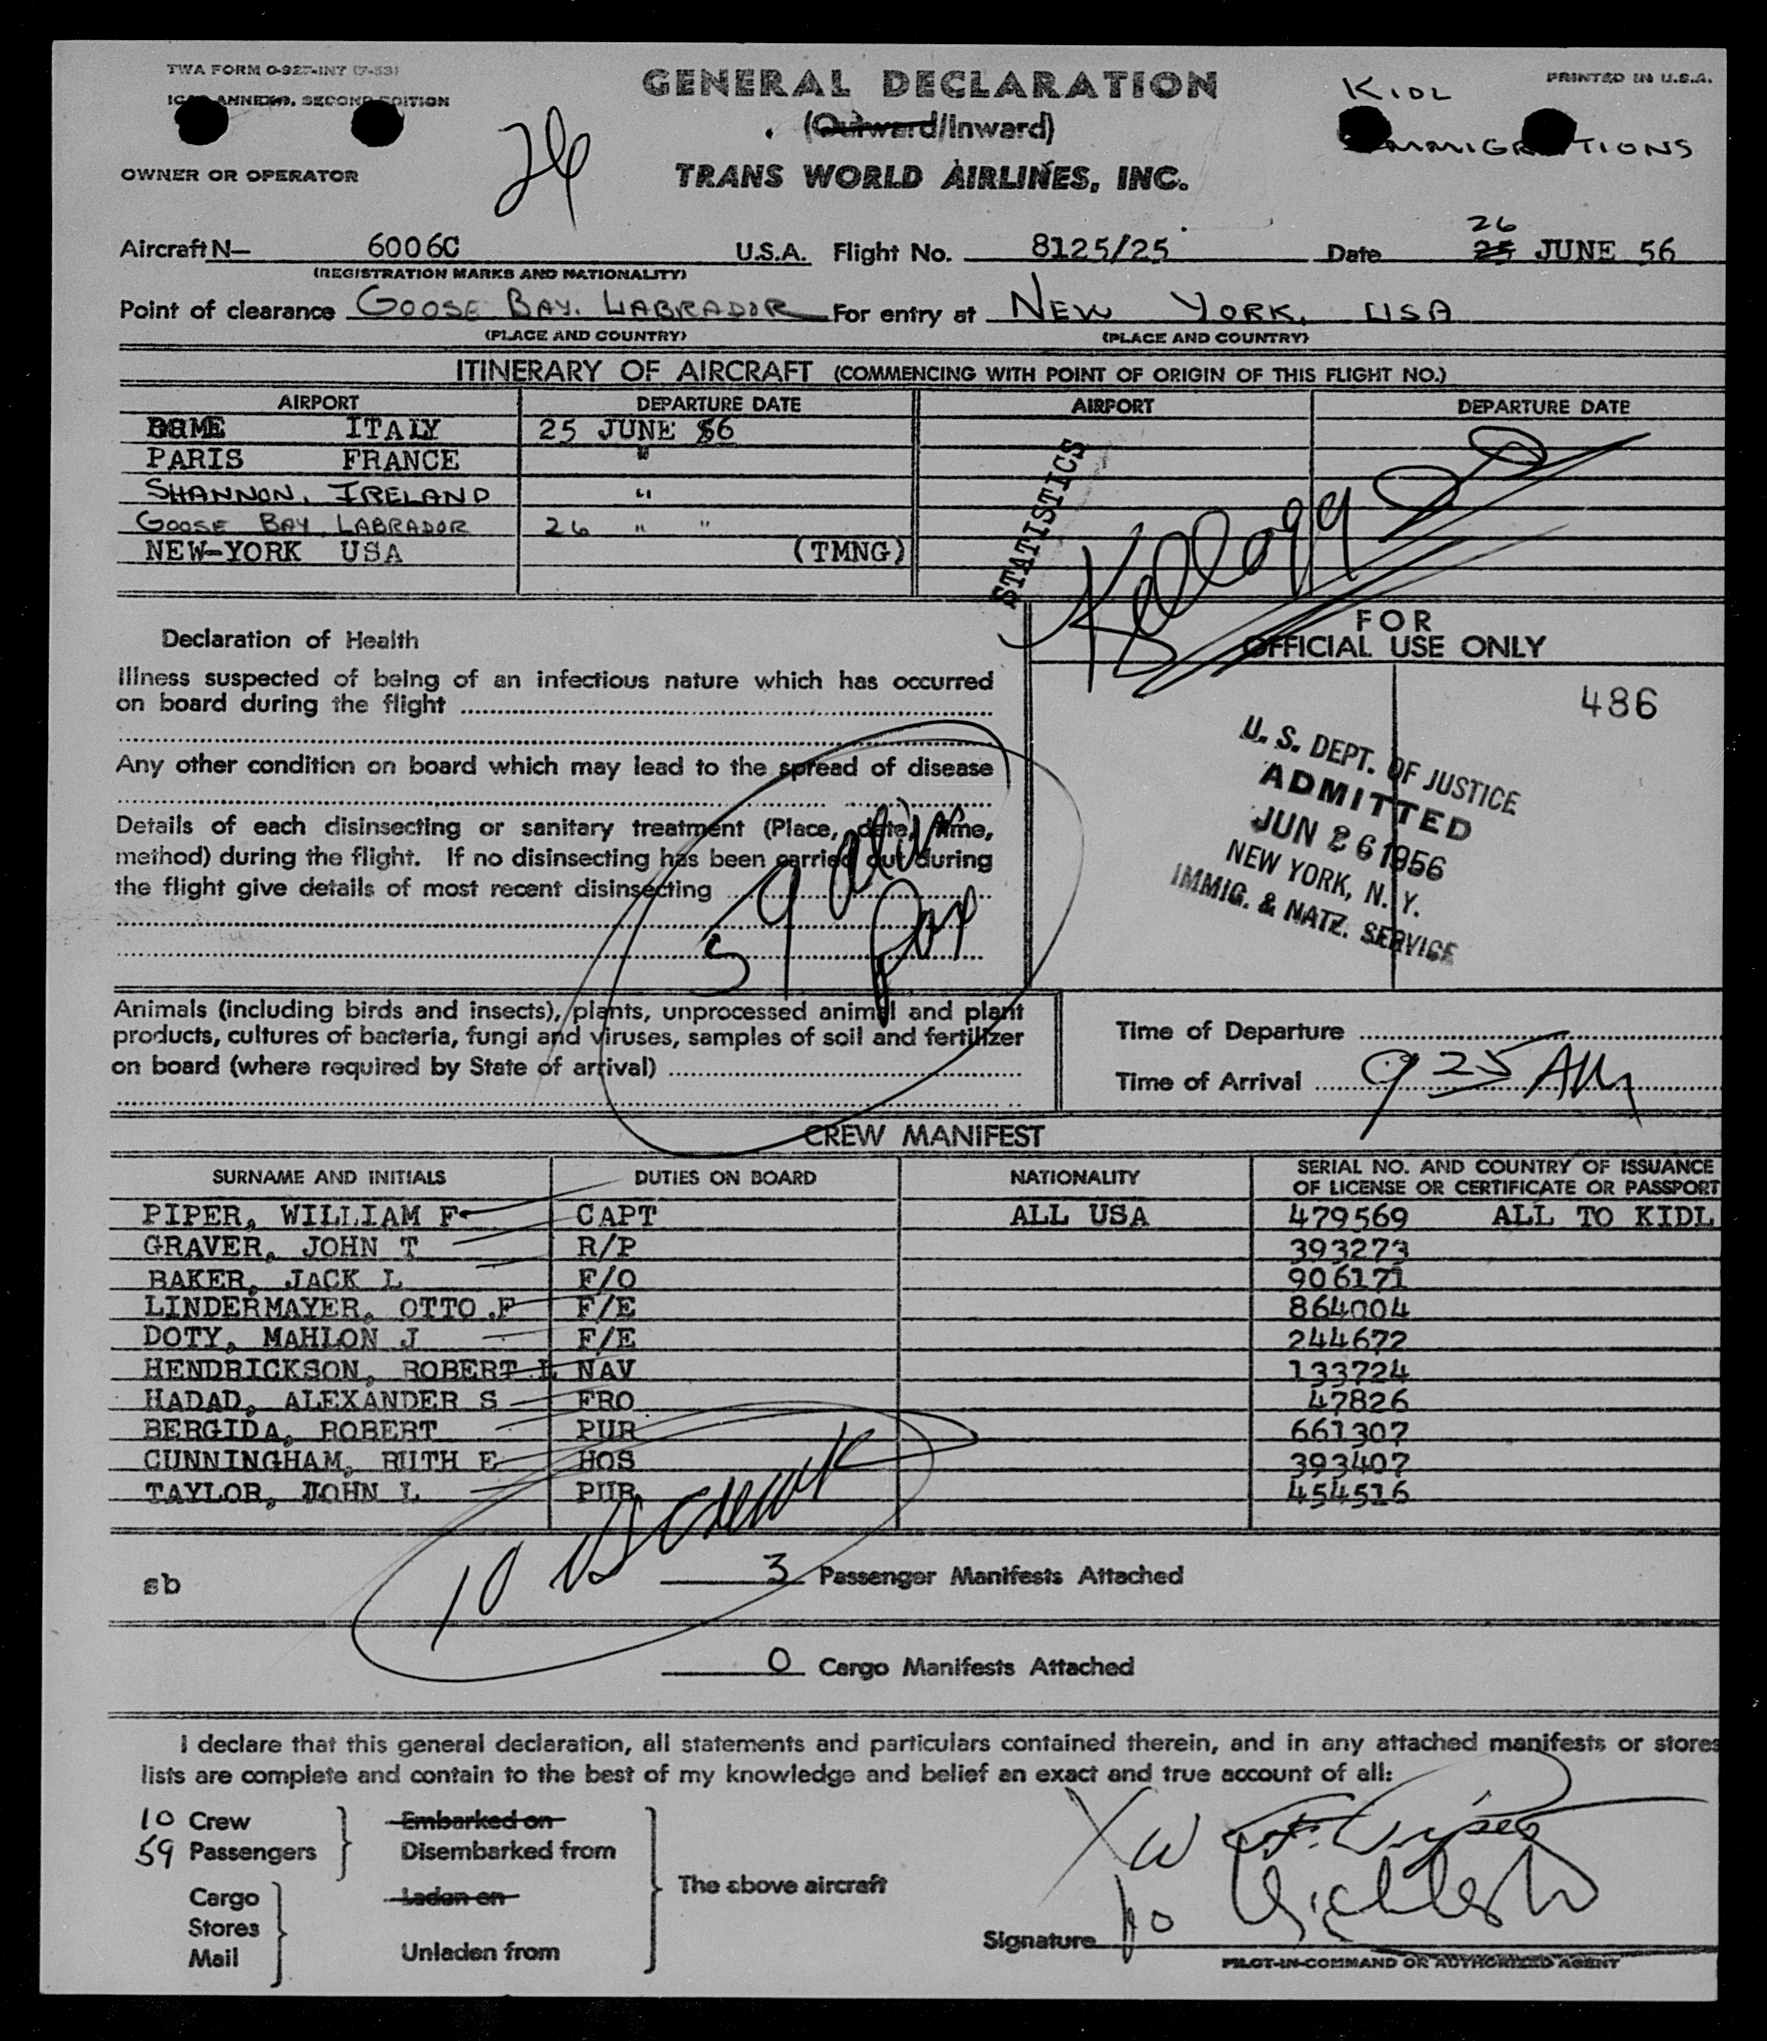 TWA FORM O-927-INT (7-53)
GENERAL DECLARATION
KIDL
PRINTED IN U.S.A.
ANNEX 9, SECOND EDITION
(Outward/Inward)
IMMIGRATIONS
OWNER OR OPERATOR
TRANS WORLD AIRLINES, INC.
Aircraft N- 6006C U.S.A. Flight No. 8125/25 Date 25 26 JUNE 56
(REGISTRATION MARKS AND NATIONALITY)
Point of clearance GOOSE BAY, LABRADOR For entry at NEW YORK, USA
(PLACE AND COUNTRY) (PLACE AND COUNTRY)
ITINERARY OF AIRCRAFT (COMMENCING WITH POINT OF ORIGIN OF THIS FLIGHT NO.)
AIRPORT DEPARTURE DATE AIRPORT DEPARTURE DATE
ROME ITALY 25 JUNE 56
PARIS FRANCE "
SHANNON, IRELAND "
GOOSE BAY, LABRADOR 26 " "
NEW-YORK USA (TMNG)
STATISTICS
Kellogg
Declaration of Health
FOR
OFFICIAL USE ONLY
Illness suspected of being of an infectious nature which has occurred
on board during the flight
486
Any other condition on board which may lead to the spread of disease
U. S. DEPT. OF JUSTICE
ADMITTED
JUN 26 1956
NEW YORK, N. Y.
IMMIG. & NATZ. SERVICE
Details of each disinsecting or sanitary treatment (Place, date, time,
method) during the flight. If no disinsecting has been carried out during
the flight give details of most recent disinsecting
59 pax
Animals (including birds and insects), plants, unprocessed animal and plant
products, cultures of bacteria, fungi and viruses, samples of soil and fertilizer
on board (where required by State of arrival)
Time of Departure
Time of Arrival 925 AM
CREW MANIFEST
SURNAME AND INITIALS DUTIES ON BOARD NATIONALITY SERIAL NO. AND COUNTRY OF ISSUANCE
OF LICENSE OR CERTIFICATE OR PASSPORT
PIPER, WILLIAM F CAPT ALL USA 479569 ALL TO KIDL
GRAVER, JOHN T R/P 393273
BAKER, JACK L F/O 906171
LINDERMAYER, OTTO F F/E 864004
DOTY, MAHLON J F/E 244672
HENDRICKSON, ROBERT L NAV 133724
HADAD, ALEXANDER S FRO 47826
BERGIDA, ROBERT PUR 661307
CUNNINGHAM, RUTH E HOS 393407
TAYLOR, JOHN L PUR 454516
10
sb
3 Passenger Manifests Attached
0 Cargo Manifests Attached
I declare that this general declaration, all statements and particulars contained therein, and in any attached manifests or stores
lists are complete and contain to the best of my knowledge and belief an exact and true account of all:
10 Crew
59 Passengers
Embarked on
Disembarked from
Cargo
Stores
Mail
Laden on
Unladen from
The above aircraft
Signature
PILOT-IN-COMMAND OR AUTHORIZED AGENT